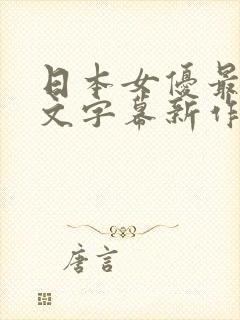 日本女優最
文字幕新作
唐言